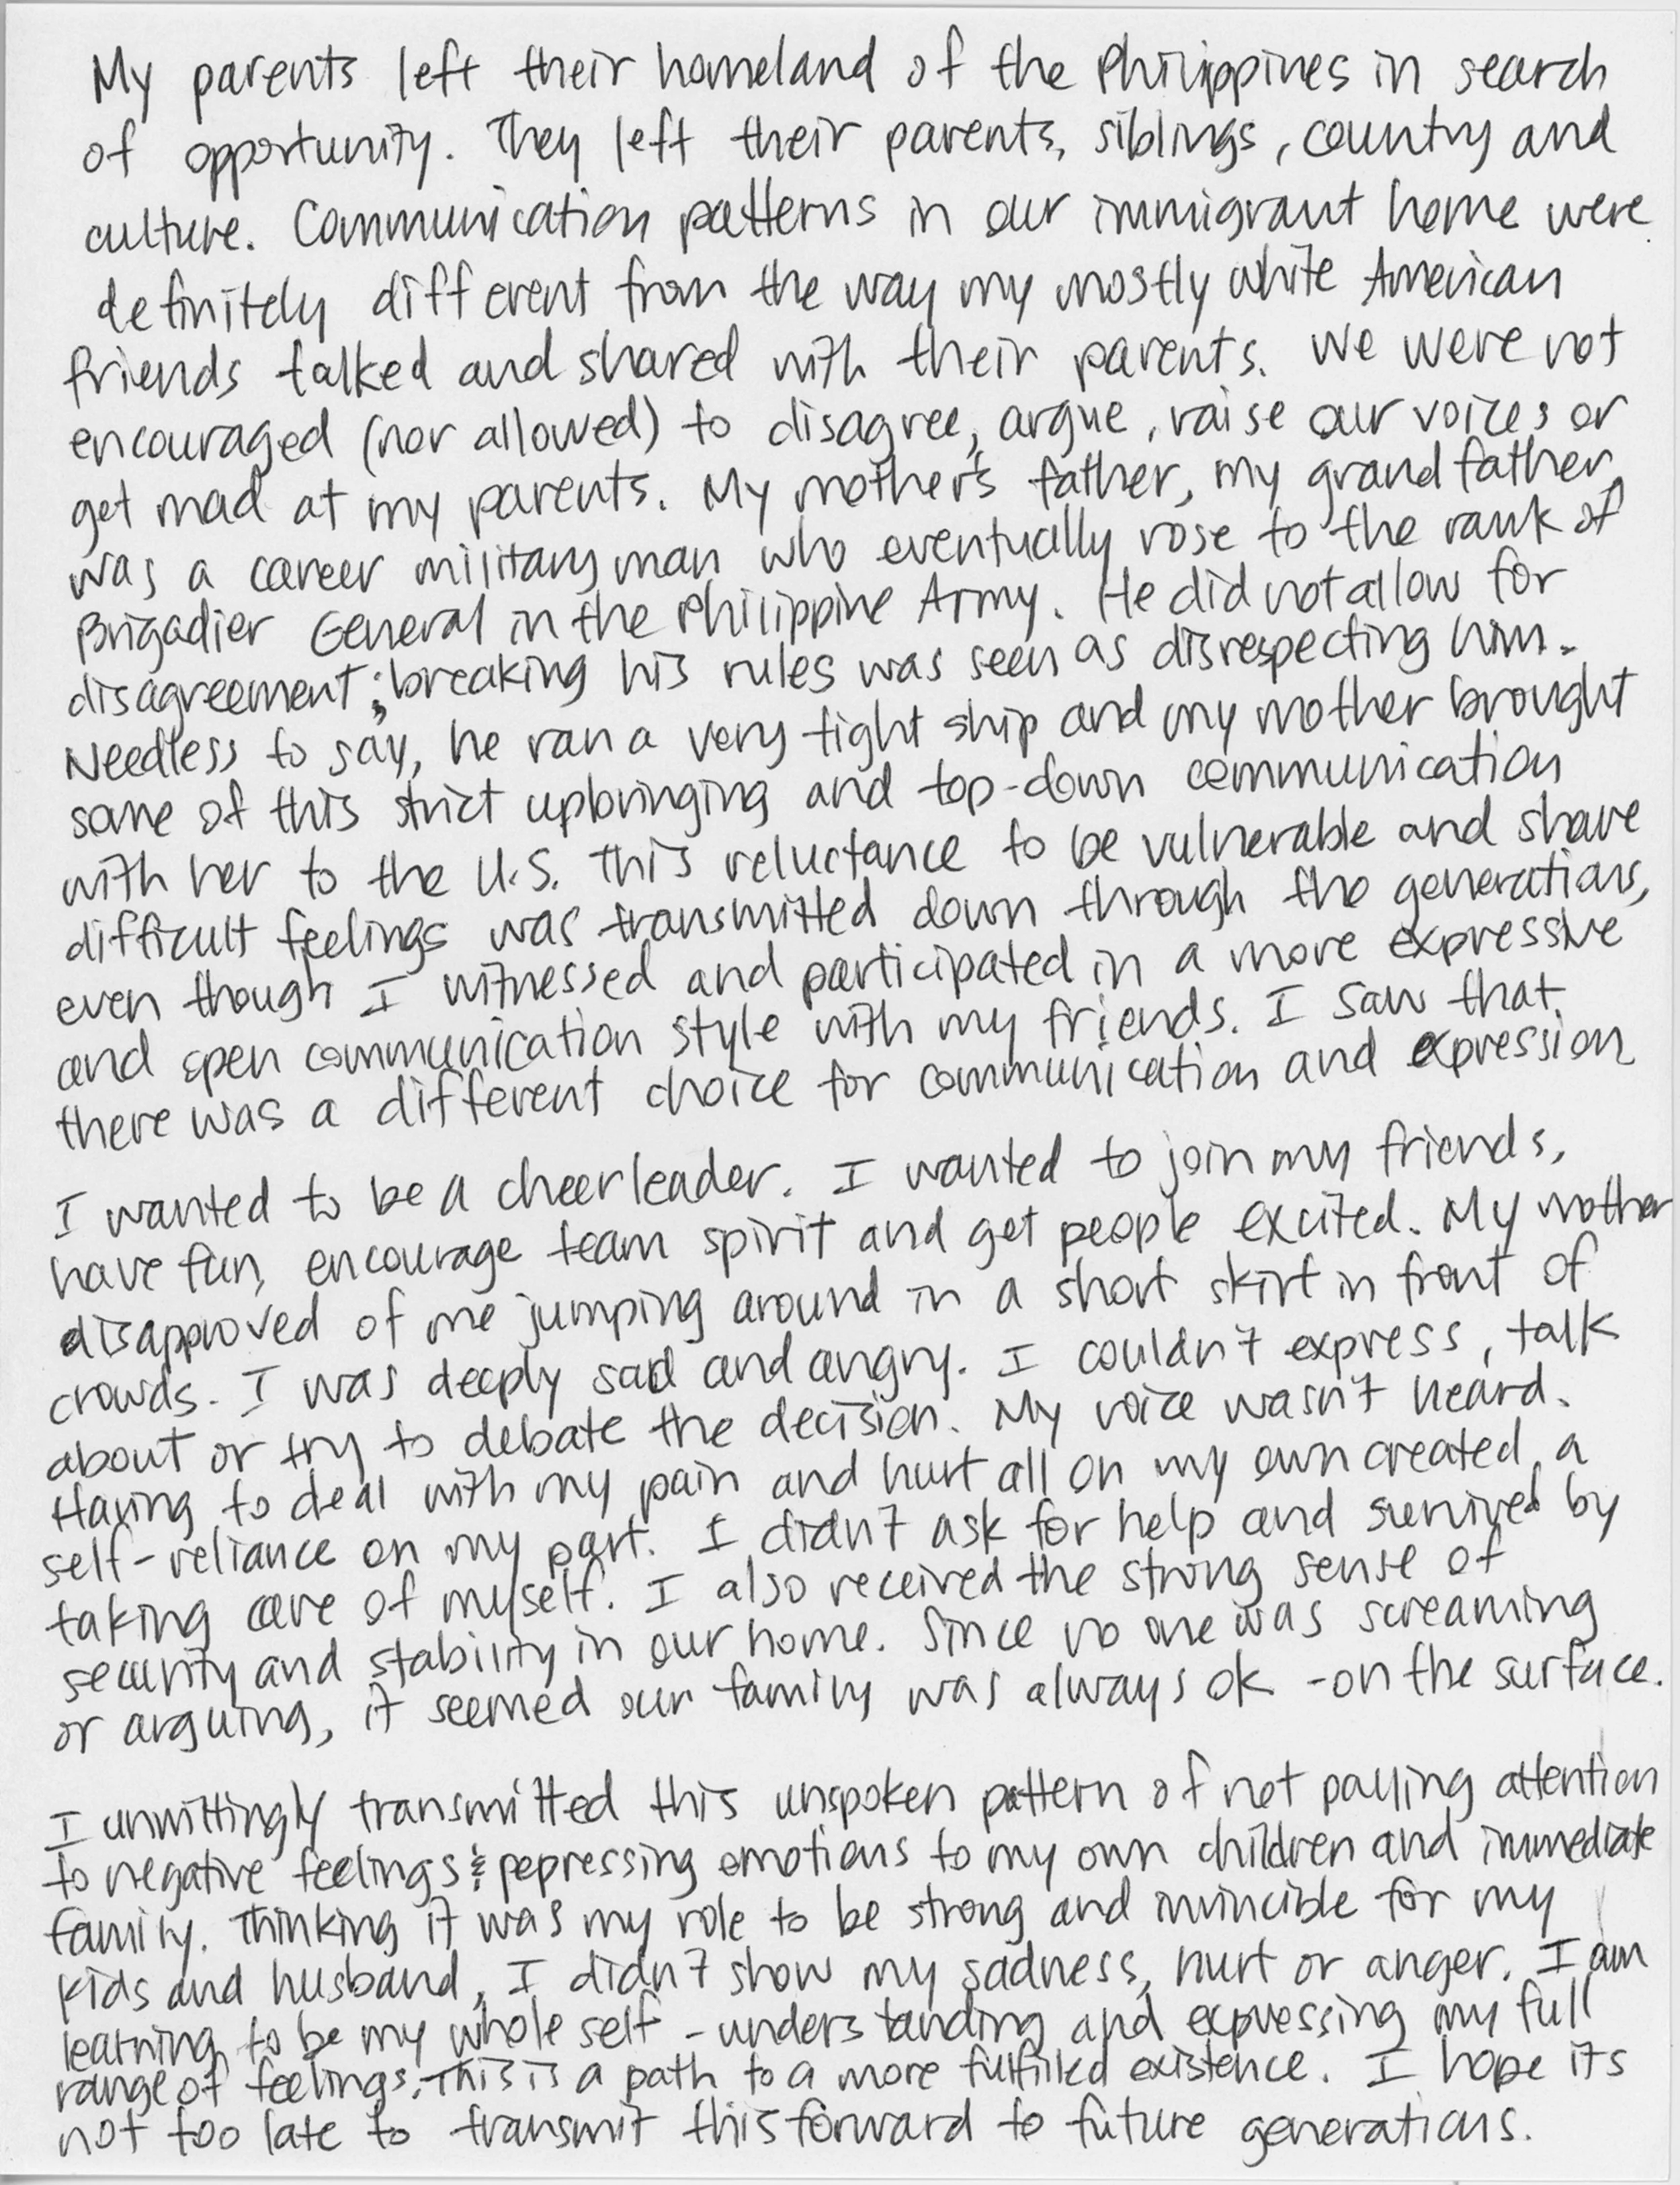 My parents left their homeland of the Philippines in search
of opportunity. They left their parents, siblings, country and
culture. Communication patterns in our immigrant home were
definitely different from the way my mostly white American
friends talked and shared with their parents. We were not
encouraged (nor allowed) to disagree, argue, raise our voices or
get mad at my parents. My mother's father, my grandfather,
was a career military man who eventually rose to the rank of
Brigadier General in the Philippine Army. He did not allow for
disagreement; breaking his rules was seen as disrespecting him.
Needless to say, he ran a very tight ship and my mother brought
some of this strict upbringing and top-down communication
with her to the U.S. This reluctance to be vulnerable and share
difficult feelings was transmitted down through the generations,
even though I witnessed and participated in a more expressive
and open communication style with my friends. I saw that
there was a different choice for communication and expression
I wanted to be a cheerleader. I wanted to join my friends,
have fun, encourage team spirit and get people excited. My mother
disapproved of me jumping around in a short skirt in front of
crowds. I was deeply sad and angry. I couldn't express, talk
about or try to debate the decision. My voice wasn't heard.
Having to deal with my pain and hurt all on my own created a
self-reliance on my part. I didn't ask for help and survived by
taking care of myself. I also received the strong sense of
security and stability in our home. Since no one was screaming
or arguing, it seemed our family was always ok - on the surface.
I unwittingly transmitted this unspoken pattern of not paying attention
to negative feelings & pepressing emotions to my own children and immediate
family. Thinking it was my role to be strong and invincible for my
kids and husband, I didn't show my sadness, hurt or anger. I am
learning to be my whole self - understanding and expressing my full
range of feelings. This is a path to a more fulfilled existence. I hope its
not too late to transmit this forward to future generations.